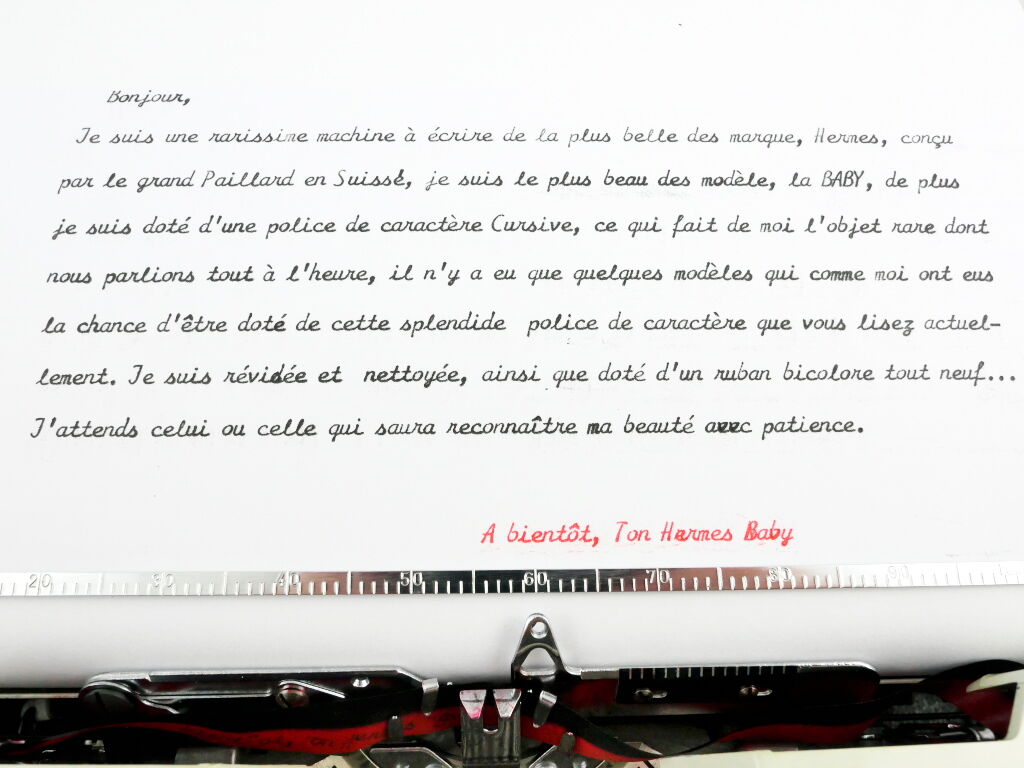 Bonjour,
Je suis une rarissime machine à écrire de la plus belle des marque, Hermes, conçu
par le grand Paillard en Suissé, je suis le plus beau des modèle, la BABY, de plus
je suis doté d'une police de caractère Cursive, ce qui fait de moi l'objet rare dont
nous parlions tout à l'heure, il n'y a eu que quelques modèles qui comme moi ont eus
la chance d'être doté de cette splendide police de caractère que vous lisez actuel-
lement. Je suis révidée et nettoyée, ainsi que doté d'un ruban bicolore tout neuf...
J'attends celui ou celle qui saura reconnaître ma beauté avec patience.
A bientôt, Ton Hermes Baby
20 30 40 50 60 70 80 90